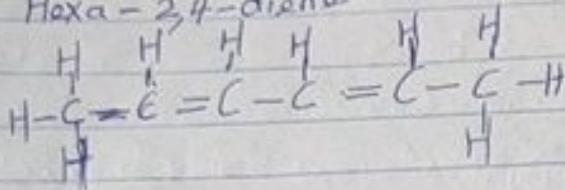 Hexa-2,4-diene
H H H H H H
H-C-C=C-C=C-C-H
H H